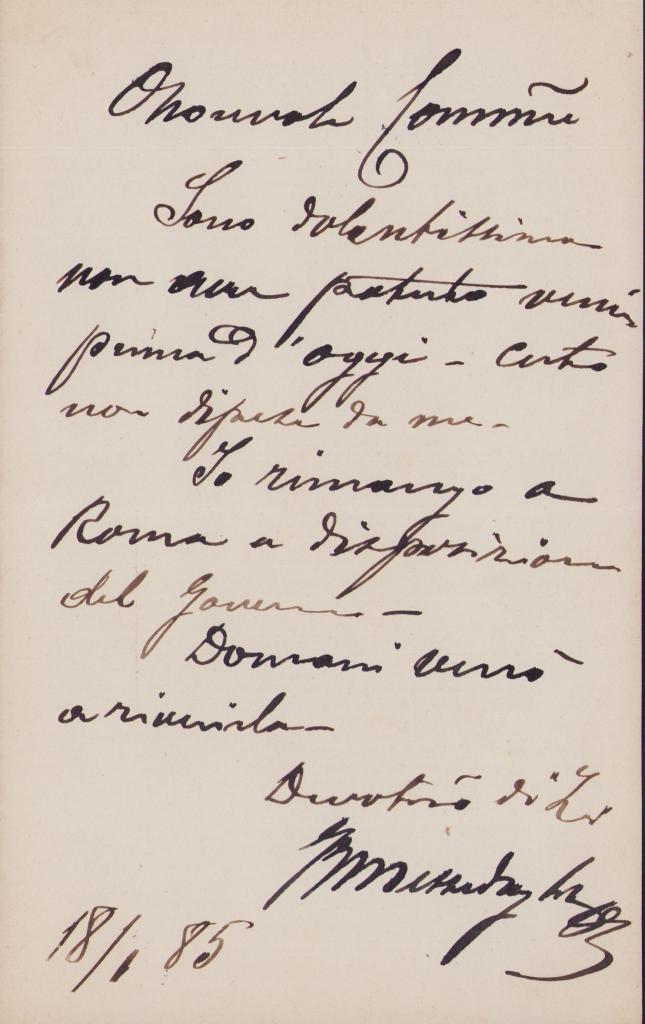 Onorevole Comm.re
Sono dolentissimo
non aver potuto venir
prima d'oggi - certo
non dipese da me -
Io rimango a
Roma a disposizione
del Governo -
Domani verrò
a riverirla -
Devot.mo di Lei
Messedaglia
18/1 85